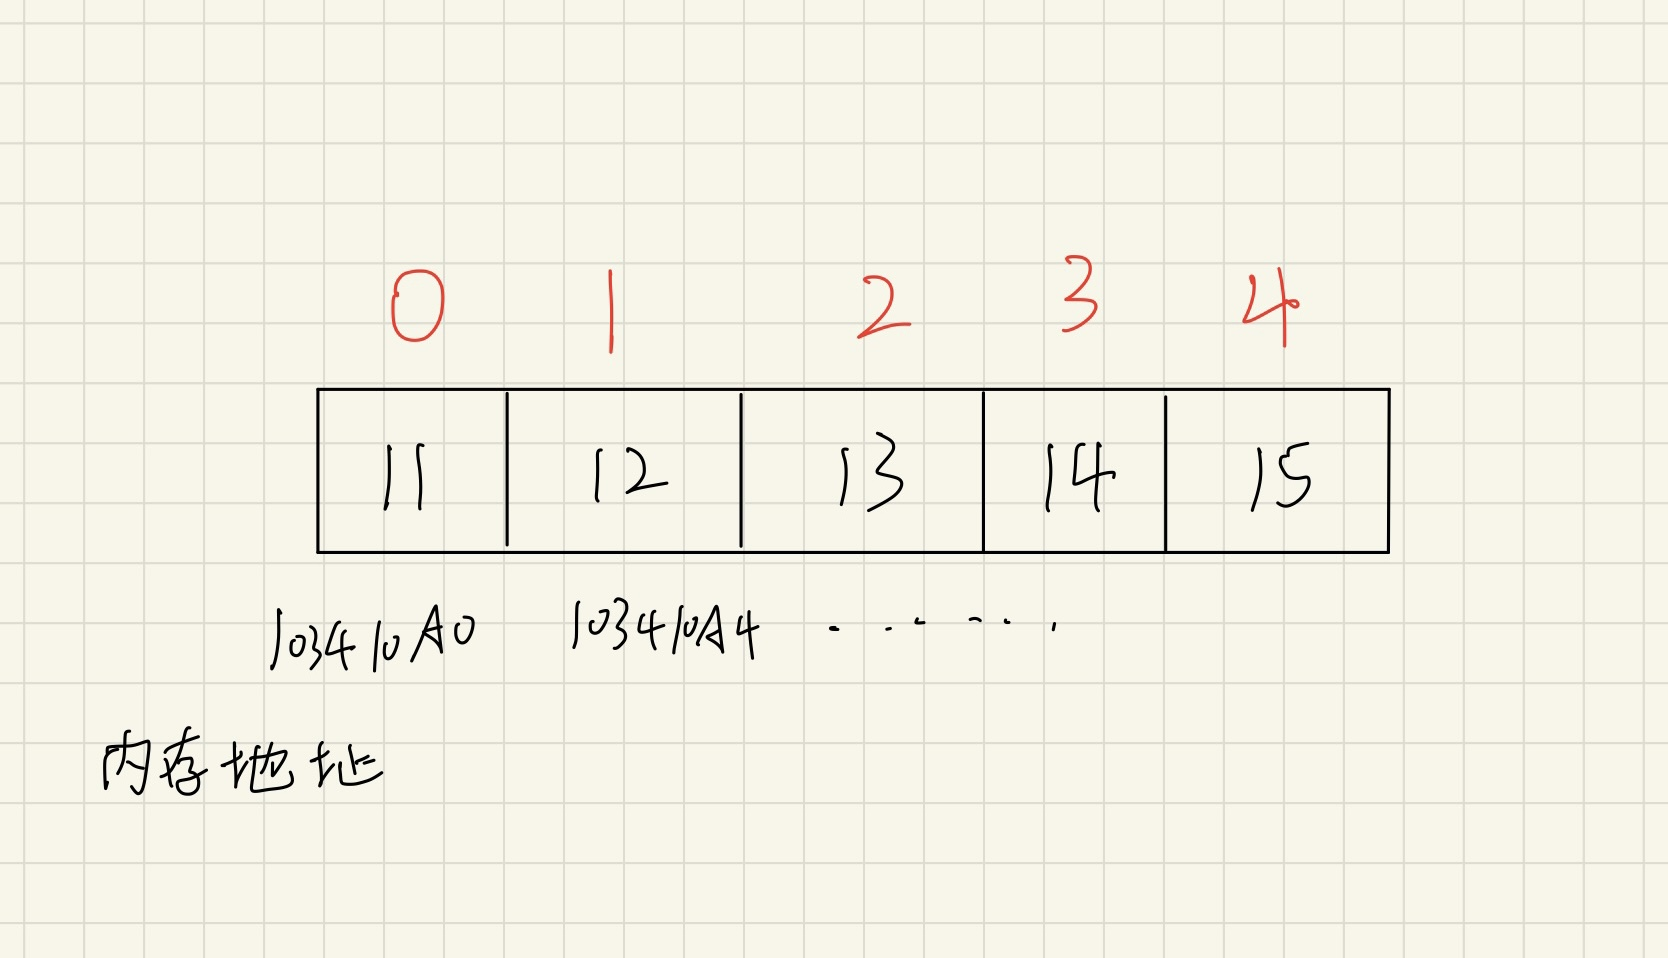 0 1 2 3 4
11 12 13 14 15
103410A0 103410A4 ........
内存地址